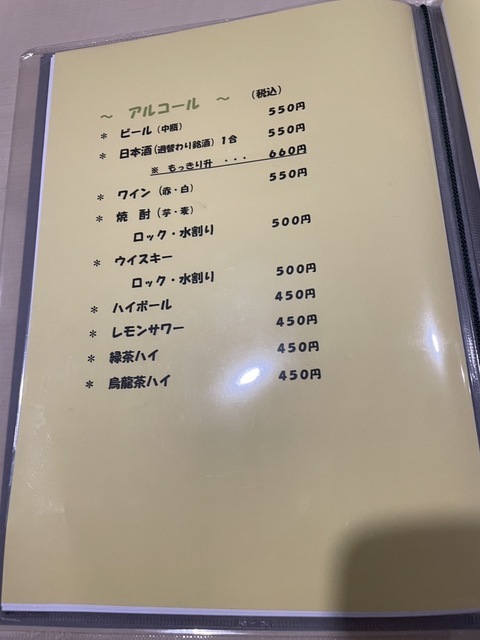 ～ アルコール ～ （税込）
＊ ビール（中瓶） 550円
＊ 日本酒（週替わり銘酒）1合 550円
※ もっきり升 ・・・ 660円
＊ ワイン（赤・白） 550円
＊ 焼 酎（芋・麦）
ロック・水割り 500円
＊ ウイスキー
ロック・水割り 500円
＊ ハイボール 450円
＊ レモンサワー 450円
＊ 緑茶ハイ 450円
＊ 烏龍茶ハイ 450円